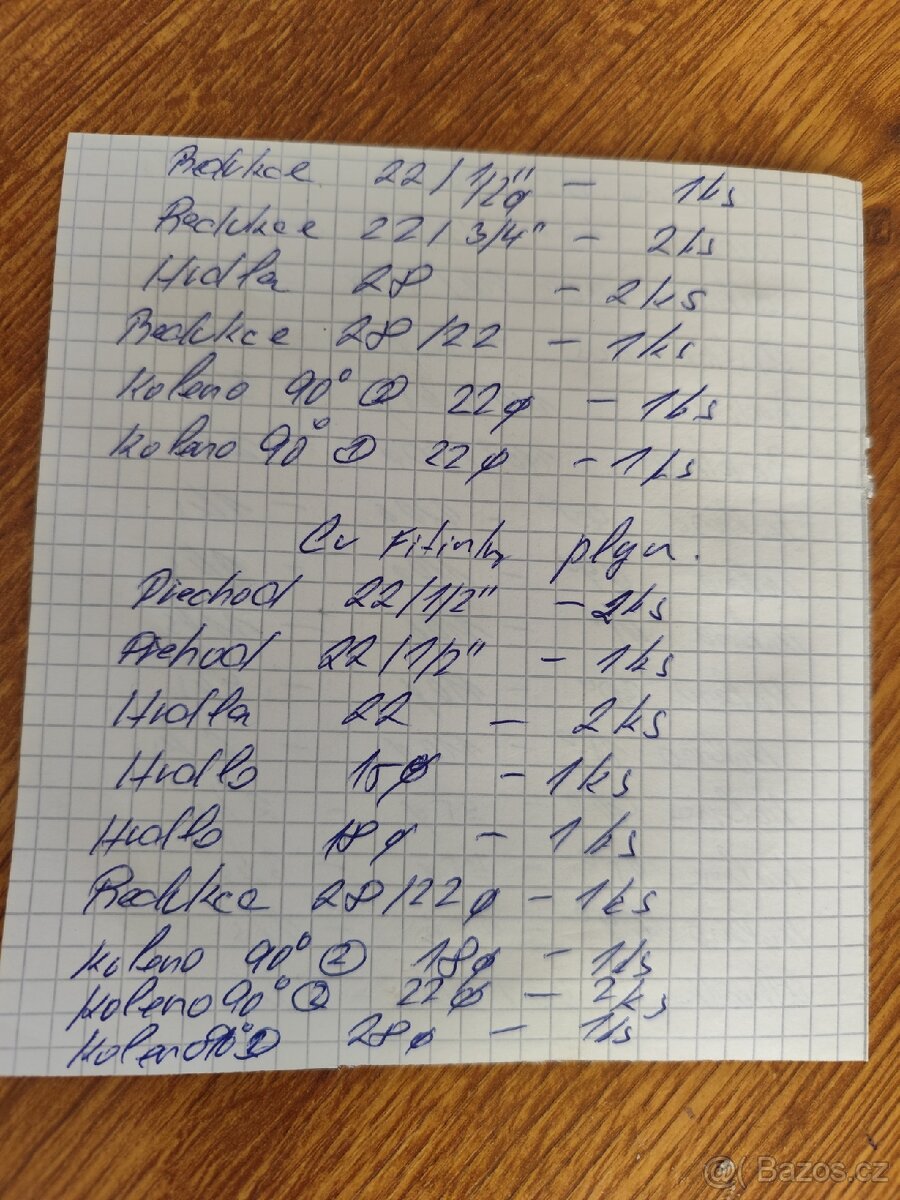 Redukce 22/1/2"ø - 1ks
Redukce 22/3/4" - 2ks
Hrdla 28 - 2ks
Redukce 28/22 - 1ks
Koleno 90° ② 22ø - 1ks
Koleno 90° ① 22ø - 1ks
Cu Fitinky plyn.
Přechod 22/1/2" - 2ks
Přehod 22/1/2" - 1ks
Hrdla 22 - 2ks
Hrdlo 15ø - 1ks
Hrdlo 18ø - 1ks
Redukce 28/22ø - 1ks
Koleno 90° ② 18ø - 1ks
Koleno 90° ② 22ø - 2ks
Koleno 90° 28ø - 1ks
@ Bazos.cz